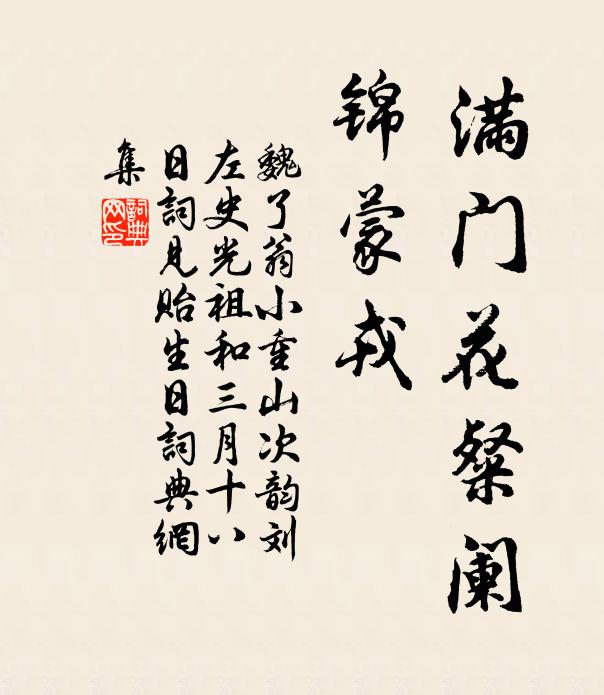 满门花粲阑
锦蒙戎
魏了翁小重山次韵刘
左史光祖和三月十八
日詞見贻生日詞典網
集
詞典
网印